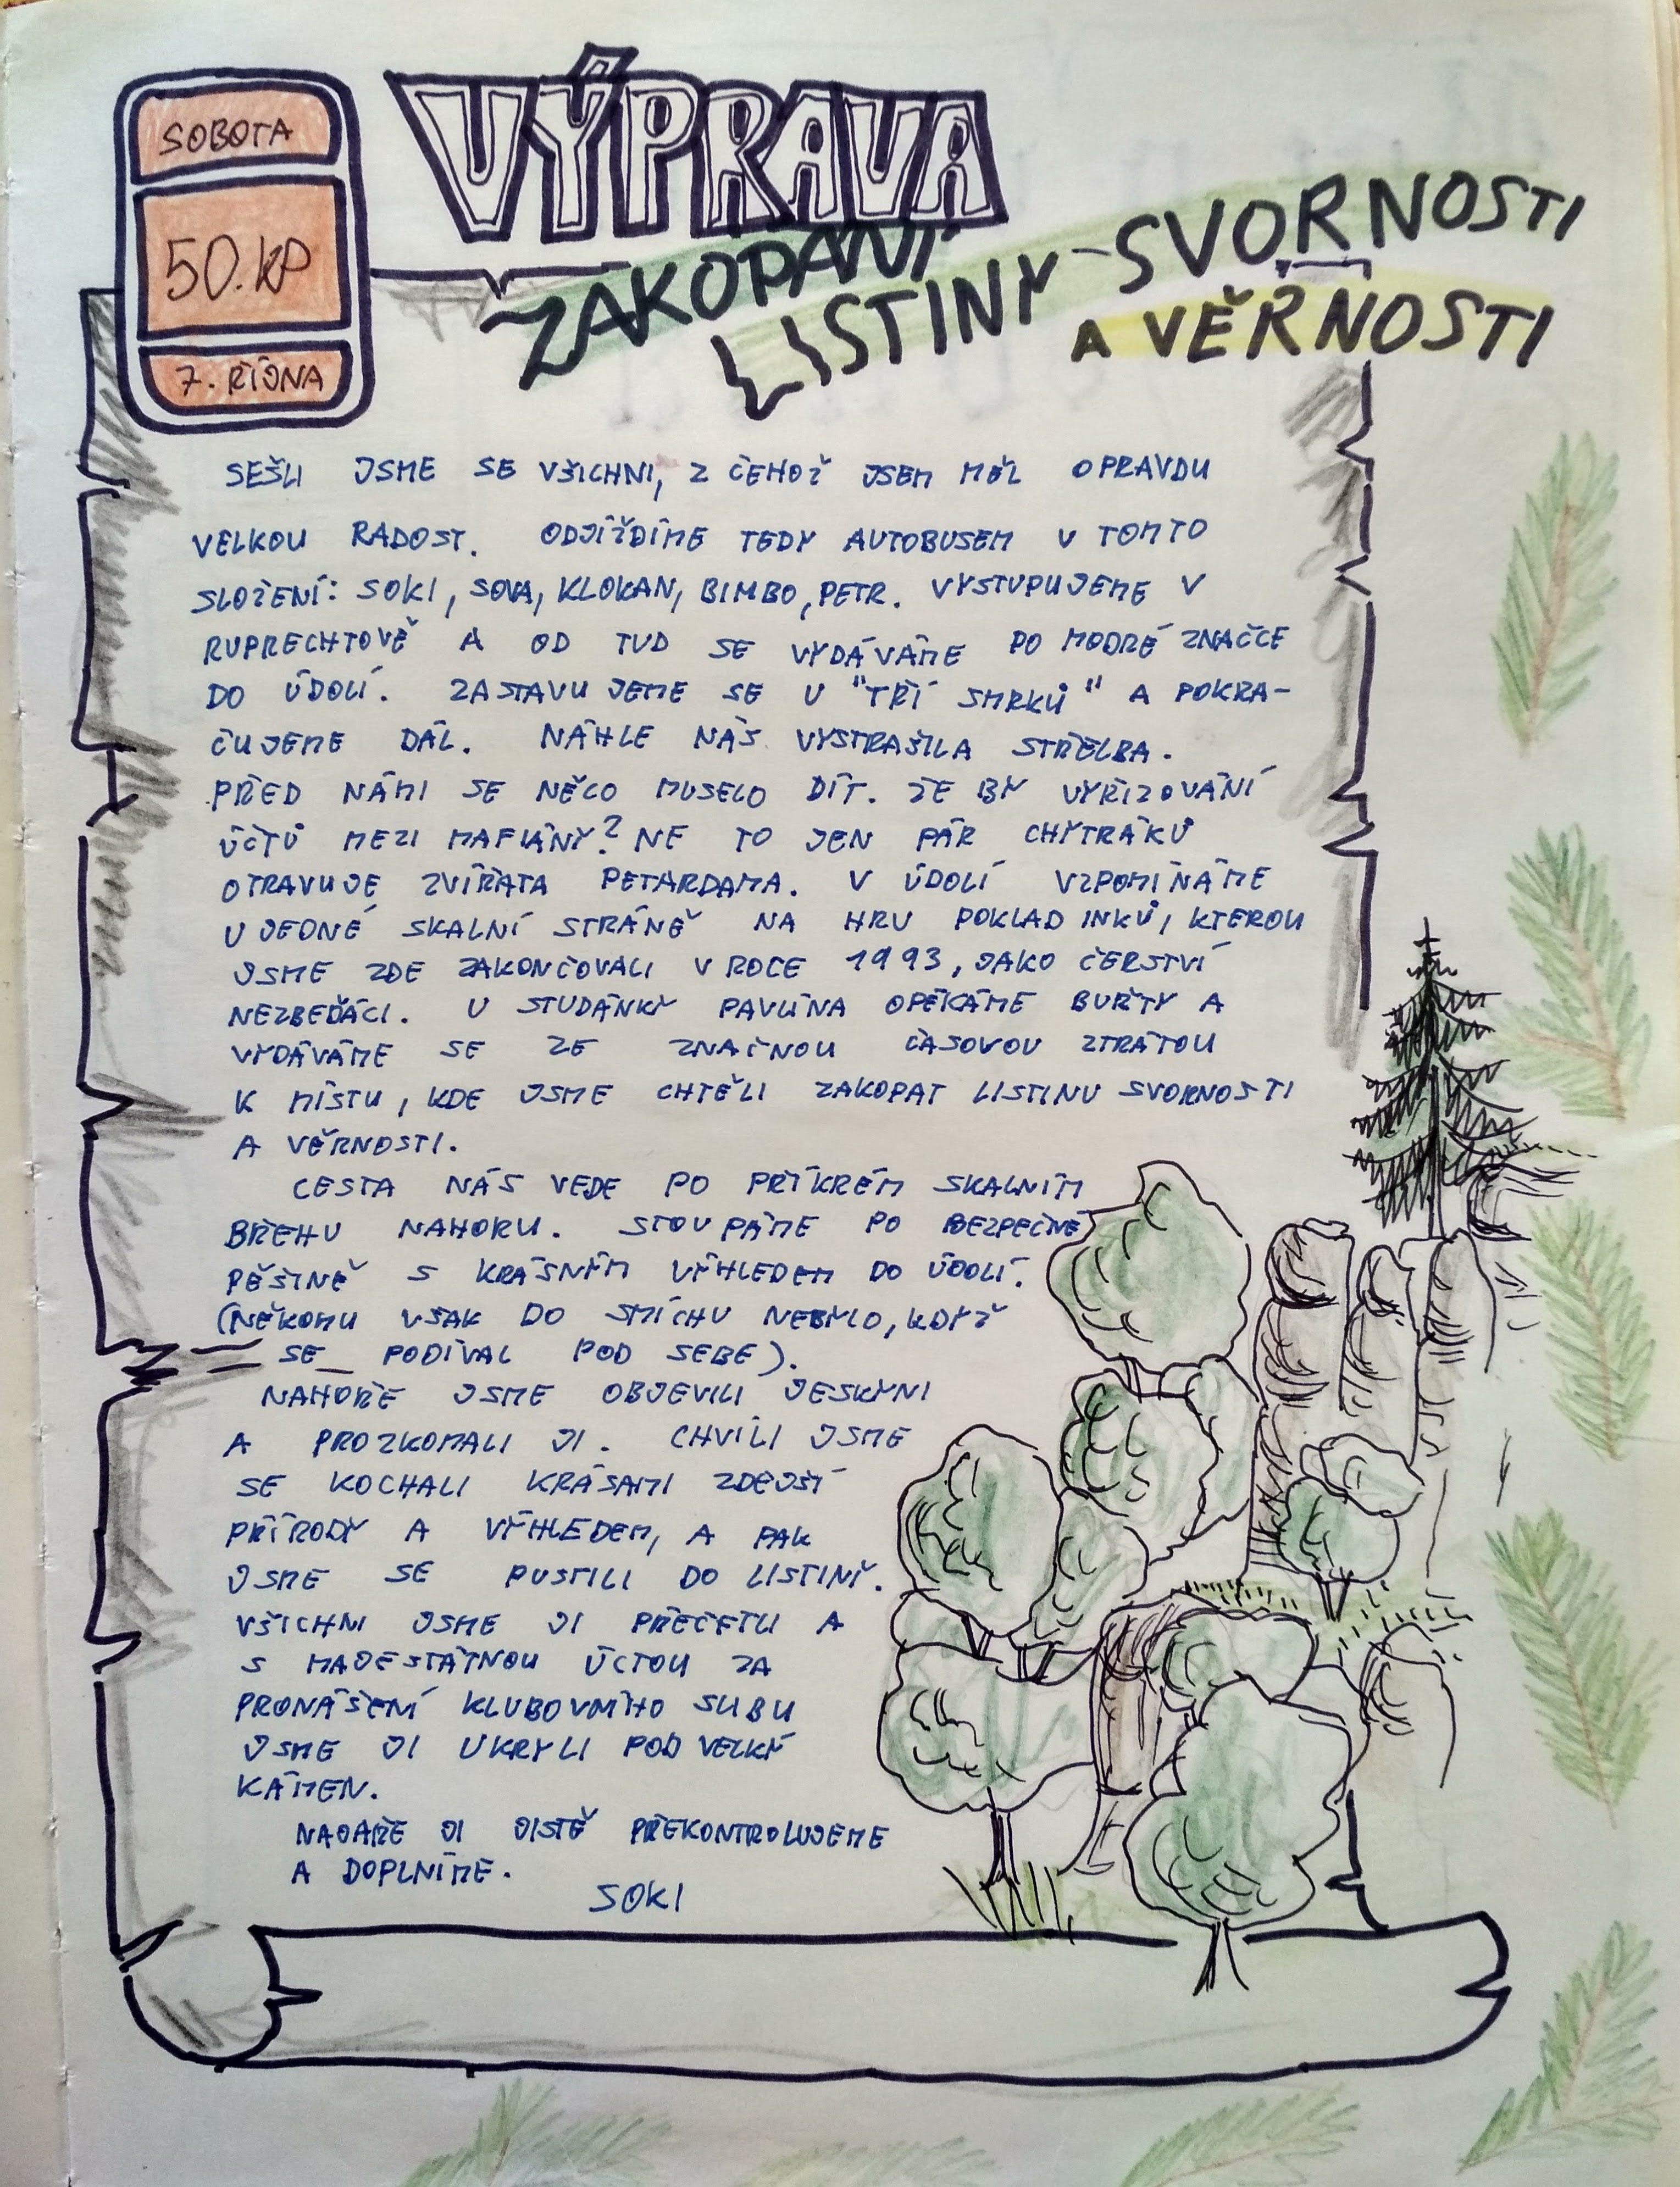 SOBOTA
50. KP
7. ŘÍJNA
VÝPRAVA
ZAKOPÁNÍ
LISTINY SVORNOSTI
A VĚRNOSTI
SEŠLI JSME SE VŠICHNI, Z ČEHOŽ JSEM MĚL OPRAVDU
VELKOU RADOST. ODJÍŽDÍME TEDY AUTOBUSEM V TOMTO
SLOŽENÍ: SOKI, SOVA, KLOKAN, BIMBO, PETR. VYSTUPUJEME V
RUPRECHTOVĚ A OD TUD SE VYDÁVÁME PO MODRÉ ZNAČCE
DO ÚDOLÍ. ZASTAVUJEME SE U "TŘÍ SMRKŮ" A POKRA-
ČUJEME DÁL. NÁHLE NÁS VYSTRAŠILA STŘELBA.
PŘED NÁMI SE NĚCO MUSELO DÍT. ŽE BY VYŘIZOVÁNÍ
ÚČTŮ MEZI MAFIÁNY? NE TO JEN PÁR CHYTRÁKŮ
OTRAVUJE ZVÍŘATA PETARDAMA. V ÚDOLÍ VZPOMÍNÁME
U JEDNÉ SKALNÍ STRÁNĚ NA HRU POKLAD INKŮ, KTEROU
JSME ZDE ZAKONČOVALI V ROCE 1993, JAKO ČERSTVÍ
NEZBEĎÁCI. U STUDÁNKY PAVLÍNA OPÉKÁME BUŘTY A
VYDÁVÁME SE ZE ZNAČNOU ČASOVOU ZTRÁTOU
K MÍSTU, KDE JSME CHTĚLI ZAKOPAT LISTINU SVORNOSTI
A VĚRNOSTI.
CESTA NÁS VEDE PO PŘÍKRÉM SKALNÍM
BŘEHU NAHORU. STOUPÁME PO BEZPEČNÉ
PĚŠINĚ S KRÁSNÝM VÝHLEDEM DO ÚDOLÍ.
(NĚKOMU VŠAK DO SMÍCHU NEBYLO, KDYŽ
SE PODÍVAL POD SEBE).
NAHOŘE JSME OBJEVILI JESKYNI
A PROZKOMALI JI. CHVÍLI JSME
SE KOCHALI KRÁSAMI ZDEJŠÍ
PŘÍRODY A VÝHLEDEM, A PAK
JSME SE PUSTILI DO LISTINY.
VŠICHNI JSME JI PŘEČETLI A
S MAJESTÁTNOU ÚCTOU ZA
PRONÁŠENÍ KLUBOVNÍHO SLIBU
JSME JI UKRYLI POD VELKÝ
KÁMEN.
NAJAŘE JI JISTĚ PŘEKONTROLUJEME
A DOPLNÍME.
SOKI